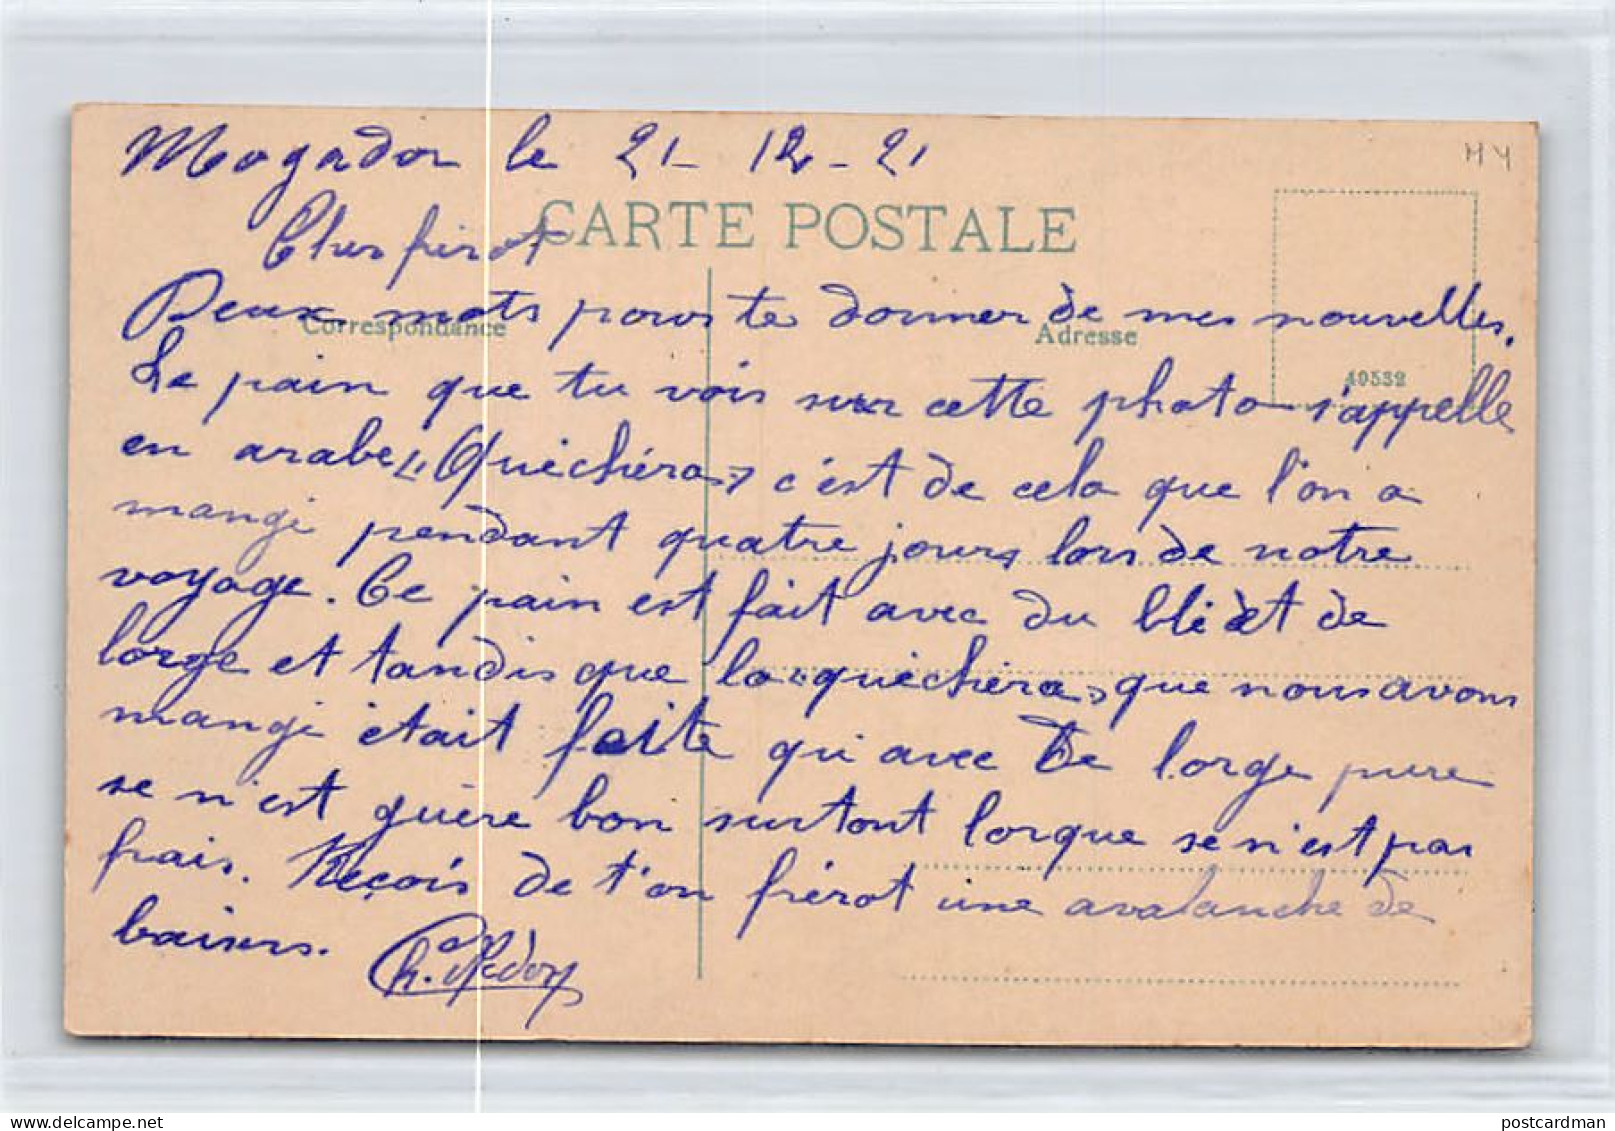 Mogador le 21-12-21
M4
CARTE POSTALE
Cher frérot
Correspondance
Adresse
Deux mots pour te donner de mes nouvelles.
49532
Le pain que tu vois sur cette photo s'appelle
en arabe « Quéchéra » c'est de cela que l'on a
mangé pendant quatre jours lors de notre
voyage. Ce pain est fait avec du blé et de
l'orge et tandis que la « quéchéra » que nous avons
mangé était faite qu'avec de l'orge pure
se n'est guère bon surtout lorque se n'est pas
frais. Reçois de t'on frérot une avalanche de
baisers.
postcardman